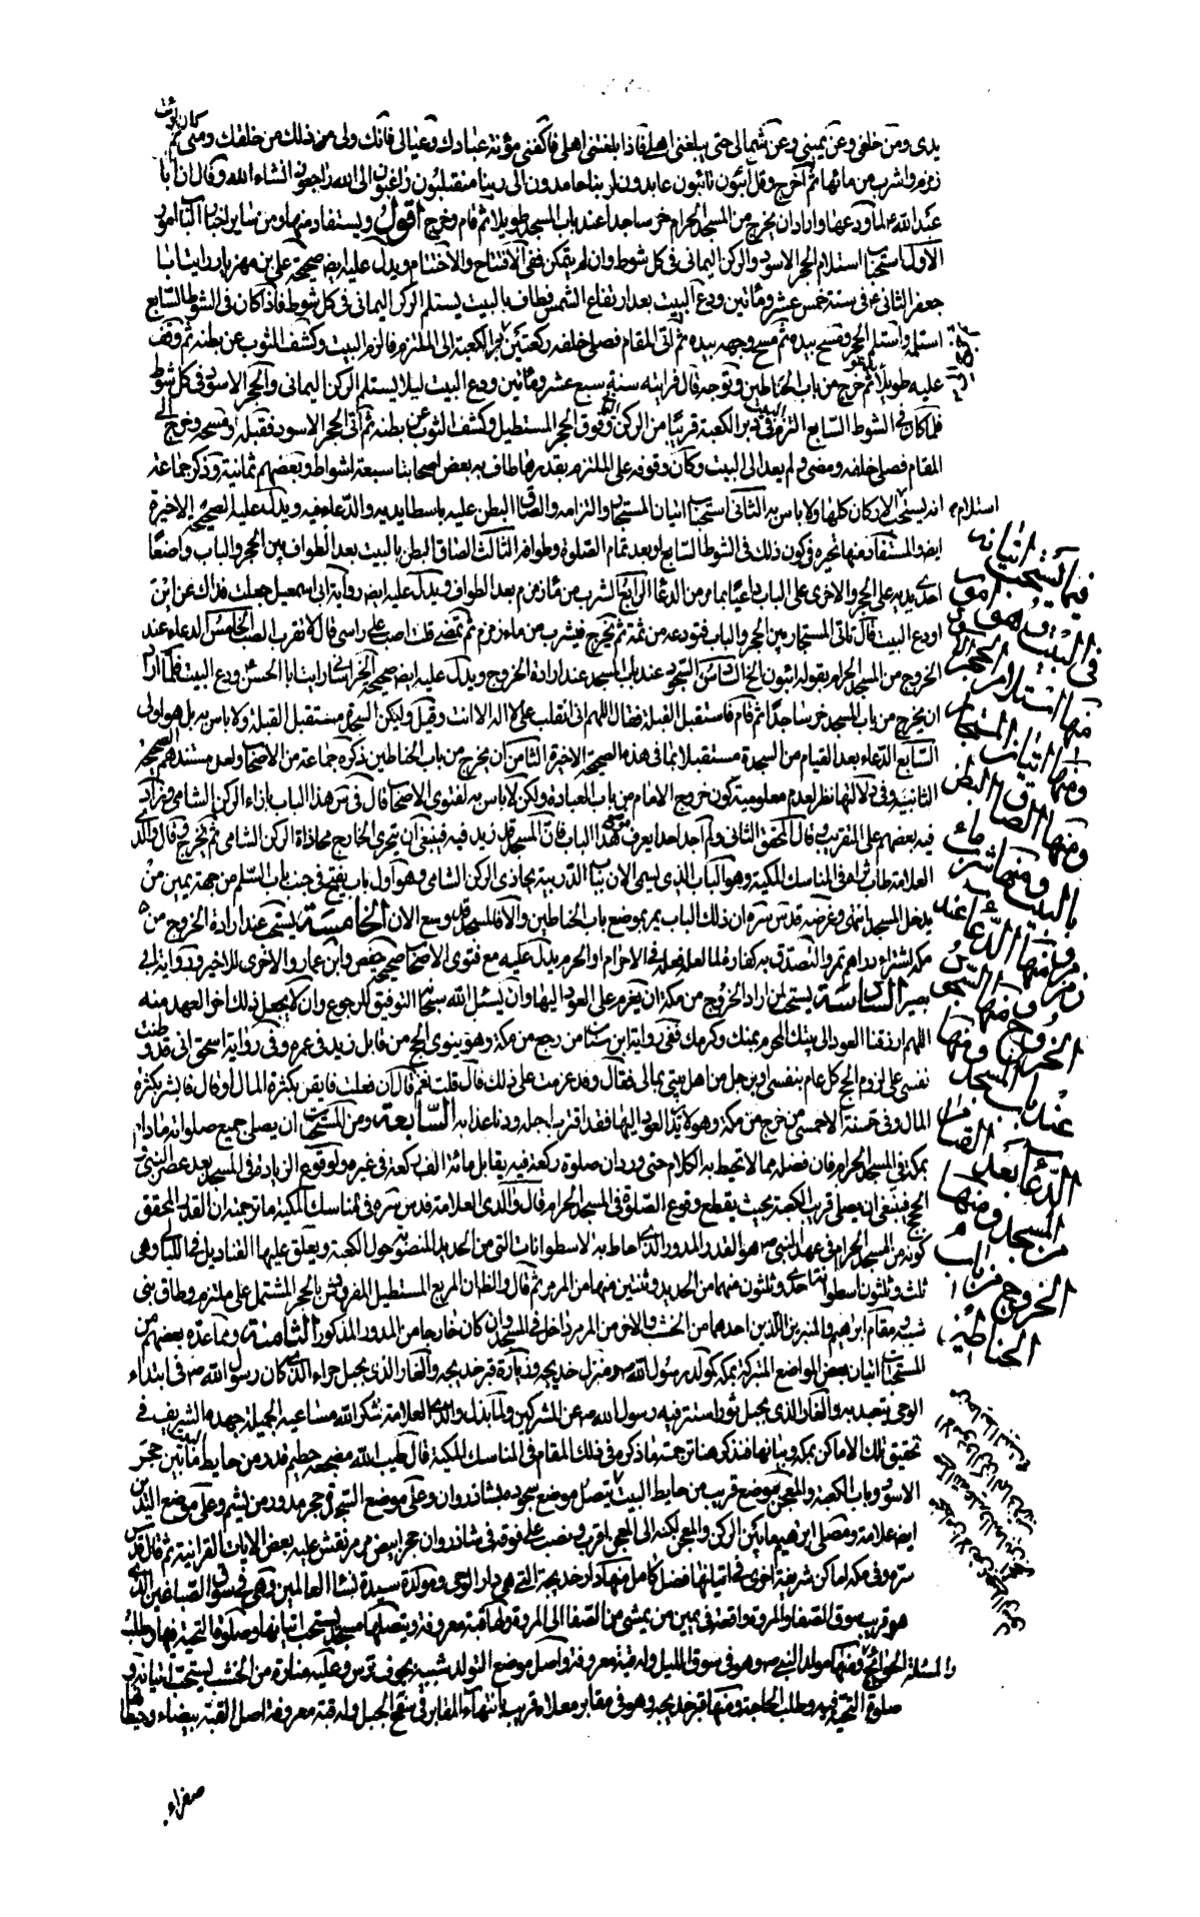 يدى ومن خلفى وعن يمينى وعن شمالى حتى يبلغنى اهلى فاذا بلغتنى اهلى فاكفنى مؤنة عبادك وعيالى فانك ولى من ذلك من خلقك ومنى ثم
زمزم واشرب من مائها ثم اخرج وقل آئبون تائبون عابدون لربنا حامدون الى ربنا منقلبون راغبون الى الله راجعون انشاء الله وقال ان ابا
عبد الله لما ودعها واراد ان يخرج من المسجد الحرام خر ساجدا عند باب المسجد طويلا ثم قام وخرج اقول ويستفاد منها ومن ساير اخبار الباب امور
الاول استحباب استلام الحجر الاسود والركن اليمانى فى كل شوط وان لم يتمكن ففى الافتتاح والاختتام ويدل عليه ايض صحيحة على بن مهزيار رايت ابا
جعفر الثانى ع فى سنة خمس عشر ومأتين ودع البيت بعد ارتفاع الشمس فطاف بالبيت يستلم الركن اليمانى فى كل شوط فاذا كان فى الشوط السابع
استلمه واستلم الحجر ومسح بيده ثم مسح وجهه بيده ثم اتى المقام فصلى خلفه ركعتين ثم خرج الى دبر الكعبة الى الملتزم فالتزم البيت وكشف الثوب عن بطنه ثم وقف
عليه طويلا ثم خرج من باب الحناطين وتوجه قال فرايته سنة سبع عشر ومأتين ودع البيت ليلا يستلم الركن اليمانى والحجر الاسود فى كل شوط
فلما كان فى الشوط السابع التزم البيت فى دبر الكعبة قريبا من الركن وفوق الحجر المستطيل وكشف الثوب عن بطنه ثم أتى الحجر الاسود فقبله ومسحه وخرج الى
المقام فصلى خلفه ومضى ولم يعد الى البيت وكان وقوفه على الملتزم بقدر ما طاف به بعض اصحابنا سبعة اشواط وبعضهم ثمانية وذكر جماعة
انه يستحب استلام الاركان كلها ولا باس به الثانى استحباب اتيان المستجار والتزامه والصاق البطن عليه باسطا يديه والدعاء فيه ويدل عليه الصحيحة الاخيرة
ايض والمستفاد منها تخييره فى كون ذلك فى الشوط السابع او بعد تمام الصلوة وطوافه الثالث الصاق البطن بالبيت بعد الطواف بين الحجر والباب واضعا
احدى يديه على الحجر والاخرى على الباب داعيا بما مر من الدعاء الرابع الشرب من ماء زمزم بعد الطواف ويدل عليه ايض رواية ابى اسمعيل جعلت فداك عن اين
اودع البيت قال تاتى المستجار بين الحجر والباب فتودعه من ثمة ثم تخرج فتشرب من ماء زمزم ثم تمضى قلت اصب على راسى قال لا تقرب الصب الخامس الدعاء عند
الخروج من المسجد الحرام بقوله ائبون الخ السادس السجود عند باب المسجد عند ارادة الخروج ويدل عليه ايض صحيحة رايت ابا الحسن ودع البيت فلما اراد
ان يخرج من باب المسجد خر ساجدا ثم قام فاستقبل القبلة فقال اللهم انى انقلب على لا اله الا انت وقيل وليكن السجدة مستقبل القبلة ولا باس به بل هو اولى
السابع الدعاء بعد القيام من السجدة مستقبلا بما فى هذه الصحيحة الاخيرة الثامن ان يخرج من باب الحناطين ذكره جماعة من الاصحاب ولعل مستندهم الصحيحة
الثانية وفى دلالتها نظر لعدم معلومية كون خروج الامام من باب العبادة ولكن لا باس به لفتوى الاصحاب قال فى س هذا الباب بازاء الركن الشامى
فيه بعضهم على التقريب وقال المحقق الثانى ولم اجد احدا يعرف هذا الباب فان المسجد قد زيد فيه فينبغى ان يتحرى الخارج محاذاة الركن الشامى ثم يخرج وقال والدى
العلامة طاب ثراه فى المناسك المكية وهو الباب الذى يسمى الان بباب الدريبة يحاذى الركن الشامى وهو اول باب يفتح فى جنب باب السلم من جهة يمين من
يدخل المسجد انتهى وغرضه قدس سره ان ذلك الباب يمر بموضع باب الحناطين والا فالمسجد قد وسع الان الخامسة يستحب عند ارادة الخروج من
مكة اشتراء دراهم تمر والتصدق به كفارة لما لعله فعله فى الاحرام والحرم يدل عليه مع فتوى الاصحاب صحيحة حفص وابن عمار والاخرى للاخير ورواية ابى
بصير السادسة يستحب لمن اراد الخروج من مكة ان يعزم على العود اليها وان يسئل الله سبحانه التوفيق للرجوع وان لا يجعل ذلك اخر العهد منه
اللهم ارزقنا العود الى بيتك المحرم بمنك وكرمك ففى رواية ابن سنان من رجع من مكة وهو ينوى الحج من قابل زيد فى عمره وفى رواية اسحق انى قد وطنت
نفسى على لزوم الحج كل عام بنفسى او برجل من اهل بيتى بمالى فقال وقد عزمت على ذلك قال قلت نعم قال ان فعلت فايقن بكثرة المال او قال فابشر بكثرة
المال وفى حسنة الاحمسى من خرج من مكة وهو لا يريد العود اليها فقد اقترب اجله ودنا عذابه السابعة ومن المستحبات ان يصلى جميع صلواته مادام
بمكة فى المسجد الحرام فان فضله مما لا تحيط به الكلام حتى ورد ان صلوة ركعة فيه يقابل مائة الف ركعة فى غيره ولوقوع الزيادة فى المسجد بعد عصر النبى ص
الحج فينبغى ان يصلى قريب الكعبة بحيث يقطع وقوع الصلوة فى المسجد الحرام قال والدى العلامة قدس سره فى المناسك المكية ما ترجمته ان القدر المحقق
كونه من المسجد الحرام فى عهد النبى ص هو القدر المدور الذى احاط به الاسطوانات التى من الحديد المنصوبة حول الكعبة ويعلق عليها القناديل فى الليالى وهى
ثلث وثلثون اسطوانة احدى وثلثون منها من الحديد وثنتين منها من المرمر ثم قال والظاهر ان المربع المستطيل المفروش بالحجر المشتمل على ملتزم وطاق بنى
شيبة ومقام ابراهيم والمنبرين اللذين احدهما من الخشب والاخر من المرمر داخل فى المسجد وان كان خارجا من المدور المذكور الثامنة ومما عده بعضهم من
المستحبات اتيان بعض المواضع المتبركة بمكة كمولد رسول الله ص ومنزل خديجة وزيارة قبر خديجة والغار الذى بجبل حراء الذى كان رسول الله ص فى ابتداء
الوحى يتعبد به والغار الذى بجبل ثور استتر فيه رسول الله ص عن المشركين ولما بذل والدى العلامة شكر الله مساعيه الجميلة جهده الشريف فى
تحقيق تلك الاماكن بمكة وبيانها فنذكر هنا ترجمة ما ذكره فى ذلك المقام فى المناسك المكية قال طيب الله مضجعه حطيم قدر من حايط البيت ما بين حجر
الاسود وباب الكعبة والمعجن موضع قريب من حايط البيت يتصل موضع سجوده بشاذروان وعلى موضع السجود حجر مدور من يشم وعلى موضع اليدين
ايض علامة ومصلى ابراهيم ما بين الركن والمعجن لكنه الى المعجن اقرب ونصب على فوقه فى شاذروان حجر ابيض مرمر نقش عليه بعض الايات القرانية ثم قال قدس
سره وفى مكة اماكن شريفة اخرى فى اتيانها فضل كامل منها دار خديجة التى هى دار الوحى ومولد سيدة نساء العالمين وهى فى سوق الصباغين الذى
هو قريب سوق الصفا والمروة واقعة فى يمين من يمشى من الصفا الى المروة ولها قبة معروفة ويتصلها مسجد يستحب اتيانها وصلوة التحية فيها وطلب
والمسئلة الحوائج ومنها مولد النبى ص وهو فى سوق الليل وله قبة معروفة واصل موضع التولد شبيه بجوف ترس وعليه منارة من الخشب يستحب اتيانه و
صلوة التحية فيه وطلب الحاجة ومنها قبر خديجة وهو فى مقابر معلاة قريب بانتهاء المقابر فى سفح الجبل وله قبة معروفة اصل القبة بيضاء وحيطانها
فيما يستحب اتيانه
فى البيت وهو امور
منها استلام الحجر
ومنها اتيان المستجار
ومنها الصاق البطن
بالبيت ومنها شرب ماء
زمزم ومنها الدعاء عند
الخروج ومنها السجود
عند باب المسجد ومنها
الدعاء بعد القيام
من المسجد ومنها
الخروج من باب
الحناطين
صفراء